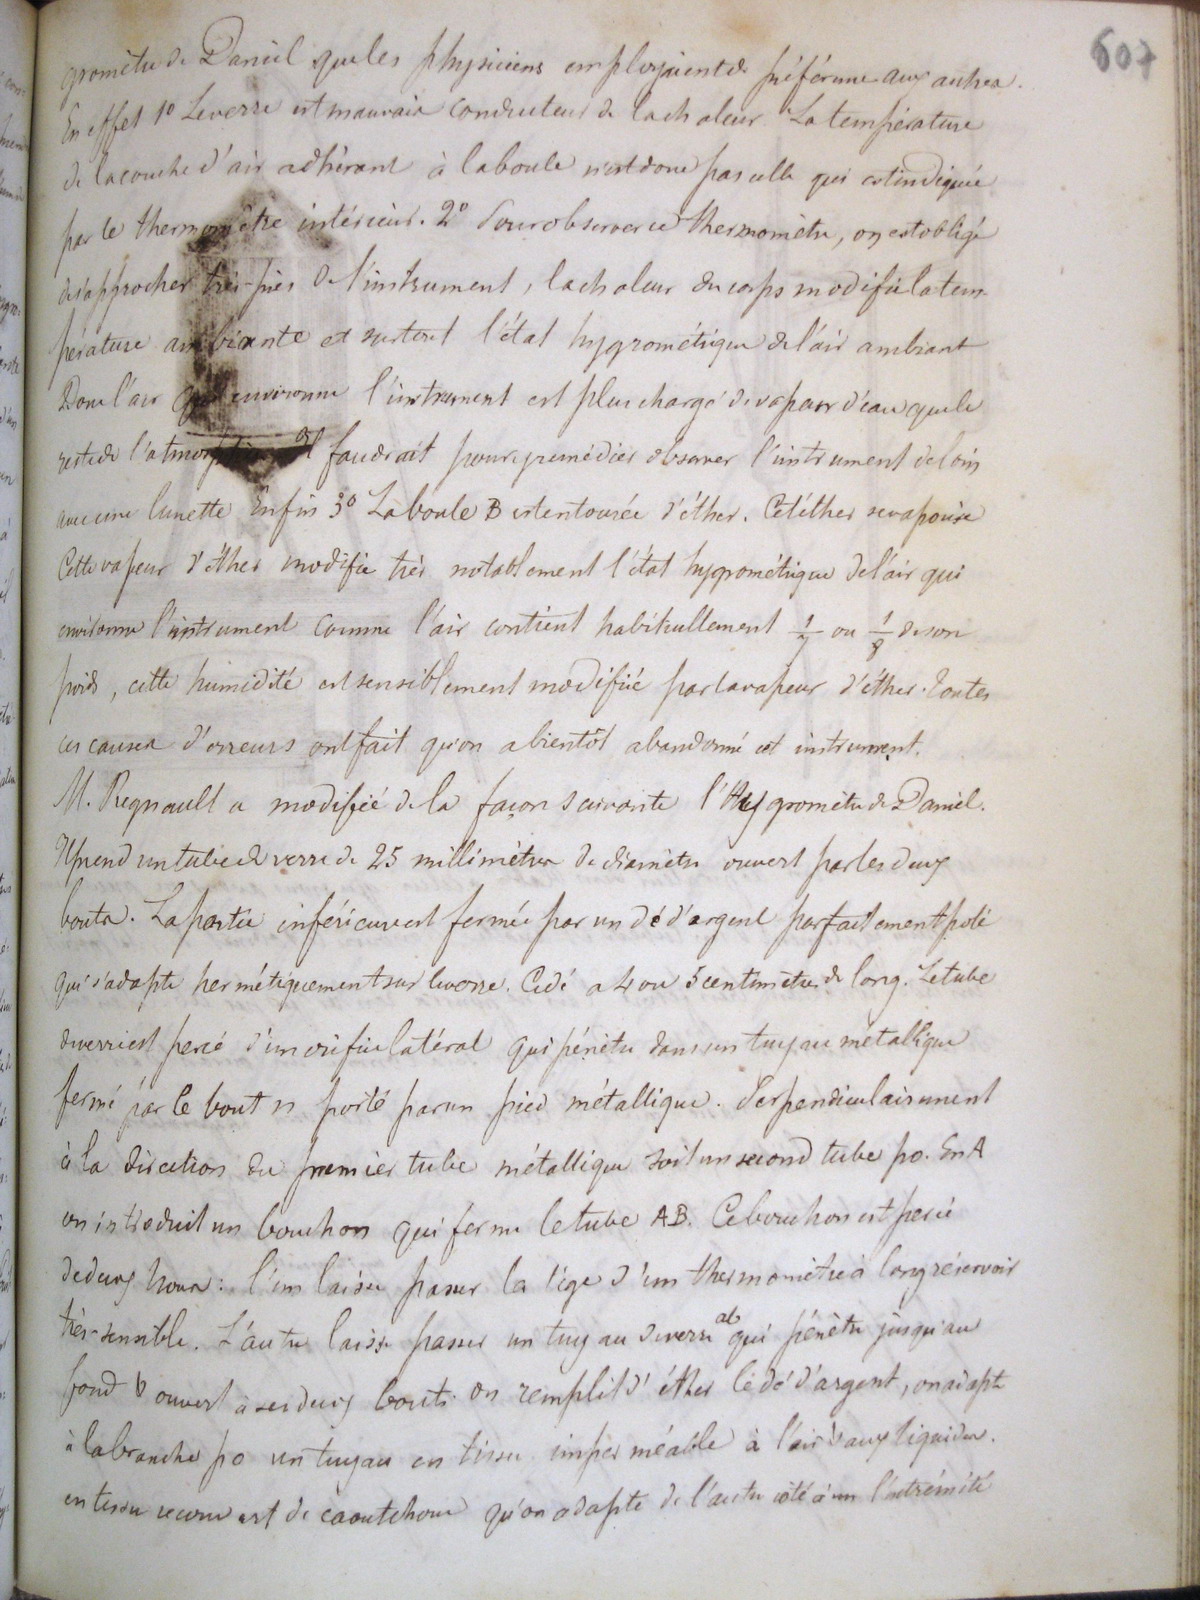 607
gromètre de Daniel que les physiciens employaient de préférence aux autres.
En effet 1º Le verre est mauvais conducteur de la chaleur. La température
de la couche d'air adhérant à la boule n'est donc pas celle qui est indiquée
par le thermomètre intérieur. 2º Pour observer ce thermomètre, on est obligé
de s'approcher très-près de l'instrument, la chaleur du corps modifie la tem-
pérature ambiante et surtout l'état hygrométrique de l'air ambiant
Donc l'air qui environne l'instrument est plus chargé de vapeur d'eau que le
reste de l'atmosphère. Il faudrait pour y remédier observer l'instrument de loin
avec une lunette Enfin 3º La boule B est entourée d'éther. Cet éther se vaporise
Cette vapeur d'éther modifie très notablement l'état hygrométrique de l'air qui
environne l'instrument comme l'air contient habituellement 1/7 ou 1/8 de son
poids, cette humidité est sensiblement modifiée par la vapeur d'éther. Toutes
ces causes d'erreurs ont fait qu'on a bientôt abandonné cet instrument.
M. Regnault a modifié de la façon suivante l'Hygromètre de Daniel.
Il prend un tube de verre de 25 millimètres de diamètre ouvert par les deux
bouts. La partie inférieure est fermée par un dé d'argent parfaitement poli
qui s'adapte hermétiquement sur le verre. Ce dé a 4 ou 5 centimètres de long. Le tube
de verre est percé d'un orifice latéral qui pénètre dans un tuyau métallique
fermé par le bout n porté par un pied métallique. Perpendiculairement
à la direction du premier tube métallique soit un second tube po. En A
on introduit un bouchon qui ferme le tube AB. Ce bouchon est percé
de deux trous: l'un laisse passer la tige d'un thermomètre à long réservoir
très-sensible. L'autre laisse passer un tuyau de verre ab qui pénètre jusqu'au
fond b ouvert à ses deux bouts. On remplit d'éther le dé d'argent, on adapte
à la branche po un tuyau en tissu imperméable à l'air & aux liquides.
en tissu recouvert de caoutchouc qu'on adapte de l'autre côté à l'extrémité